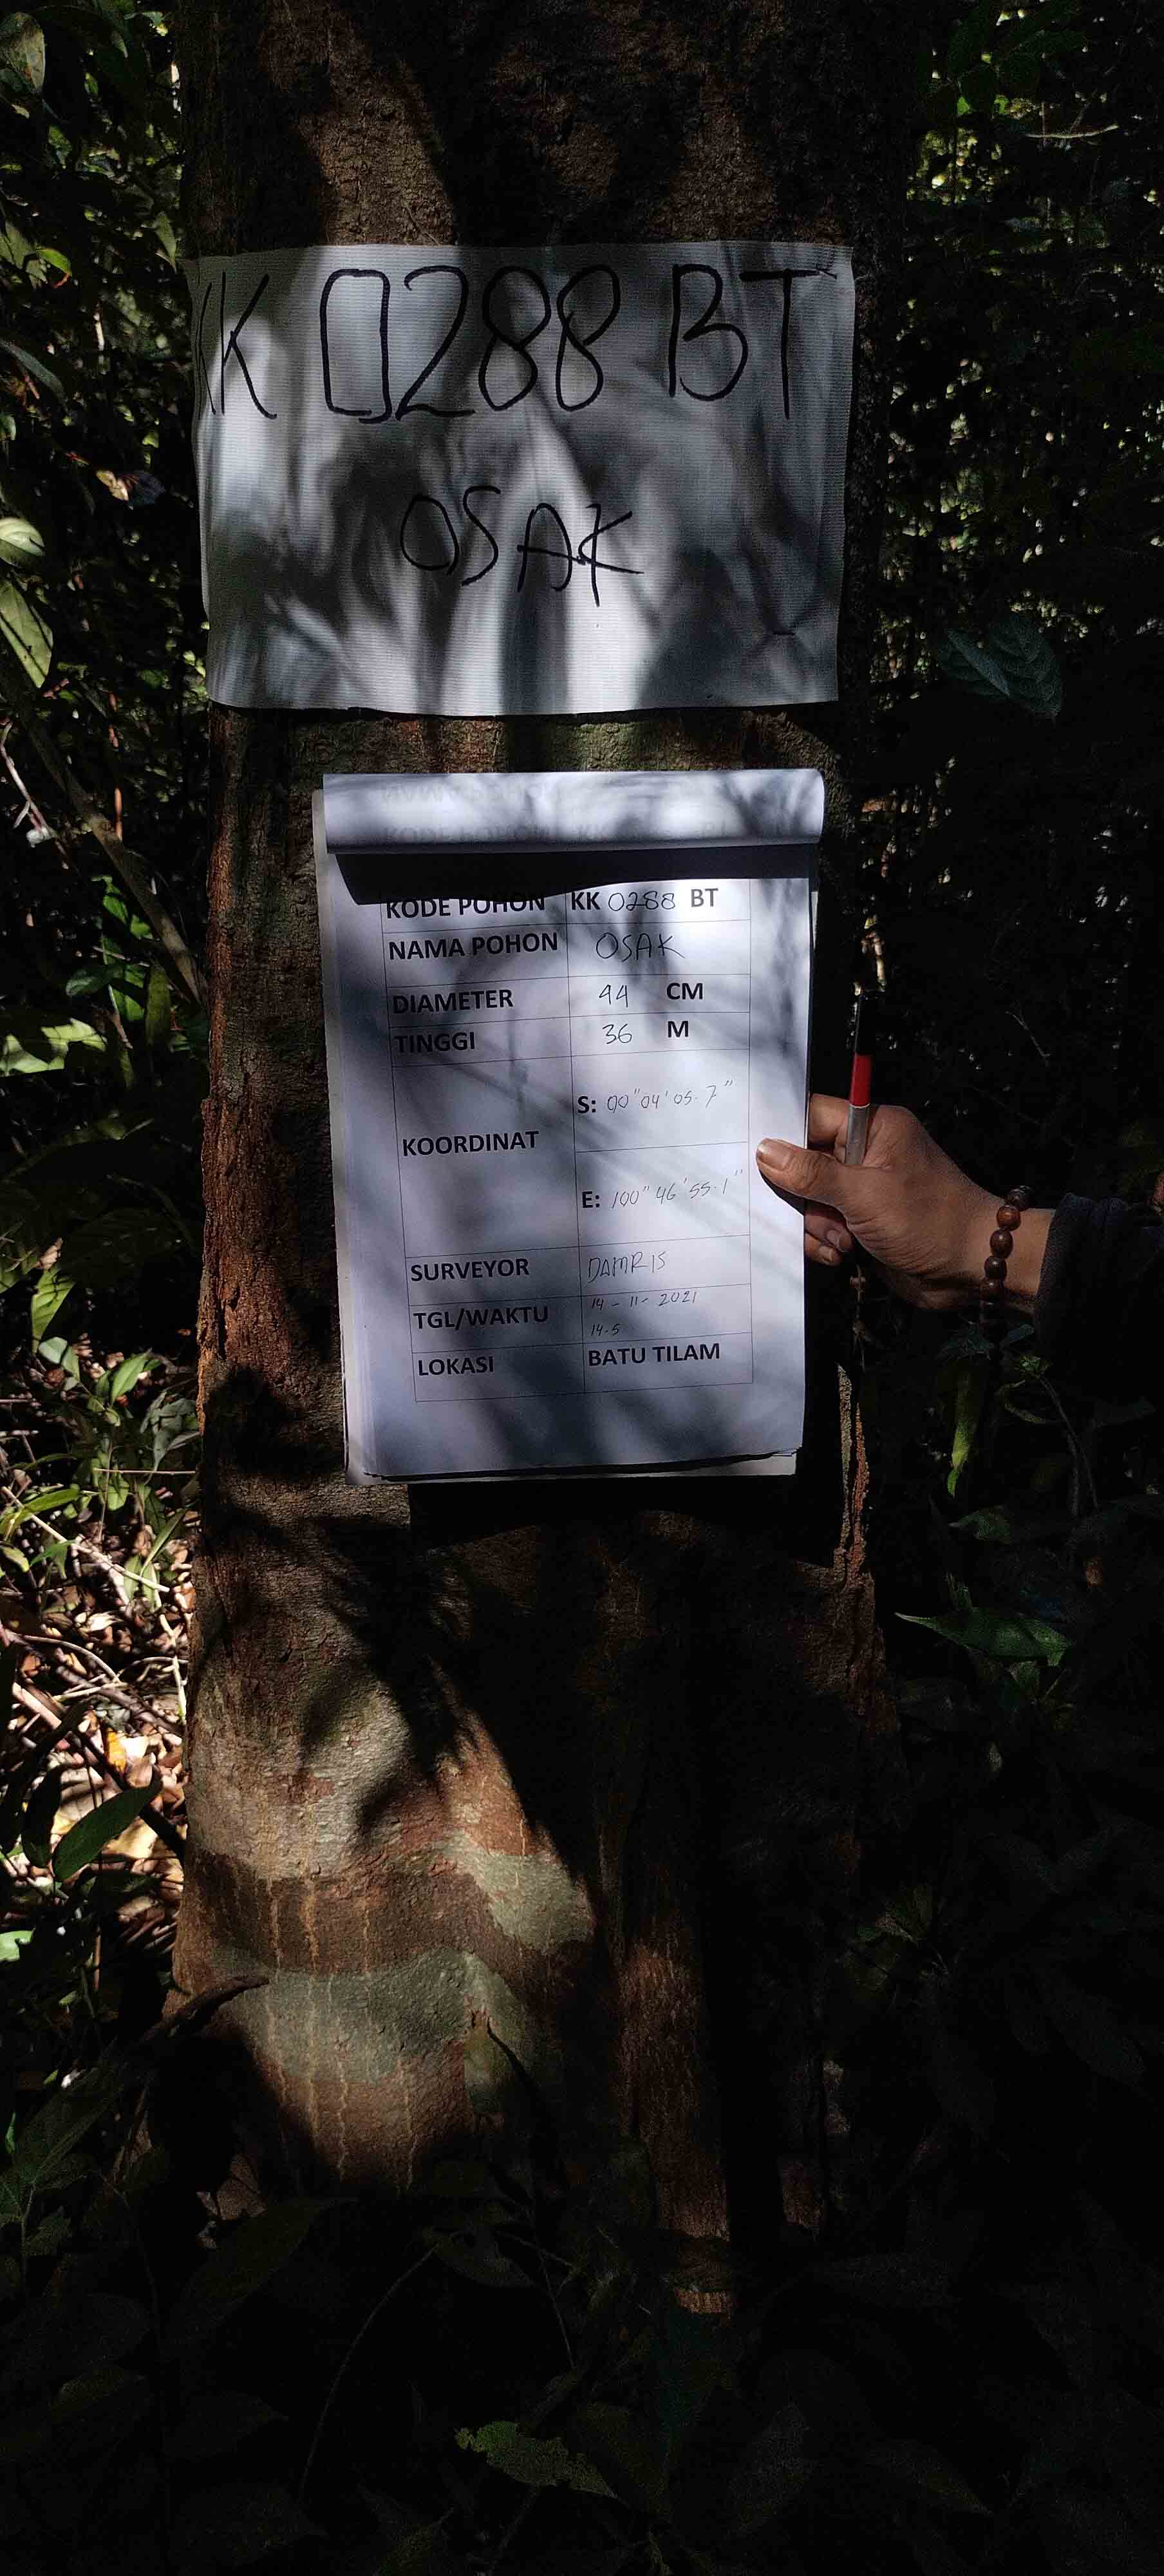 KK 0288 BT
OSAK
KODE POHON KK 0288 BT
NAMA POHON OSAK
DIAMETER 44 CM
TINGGI 36 M
KOORDINAT
S: 00"04'05.7"
E: 100"46'55.1"
SURVEYOR DAMRIS
TGL/WAKTU 14-11-2021
14-5
LOKASI BATU TILAM